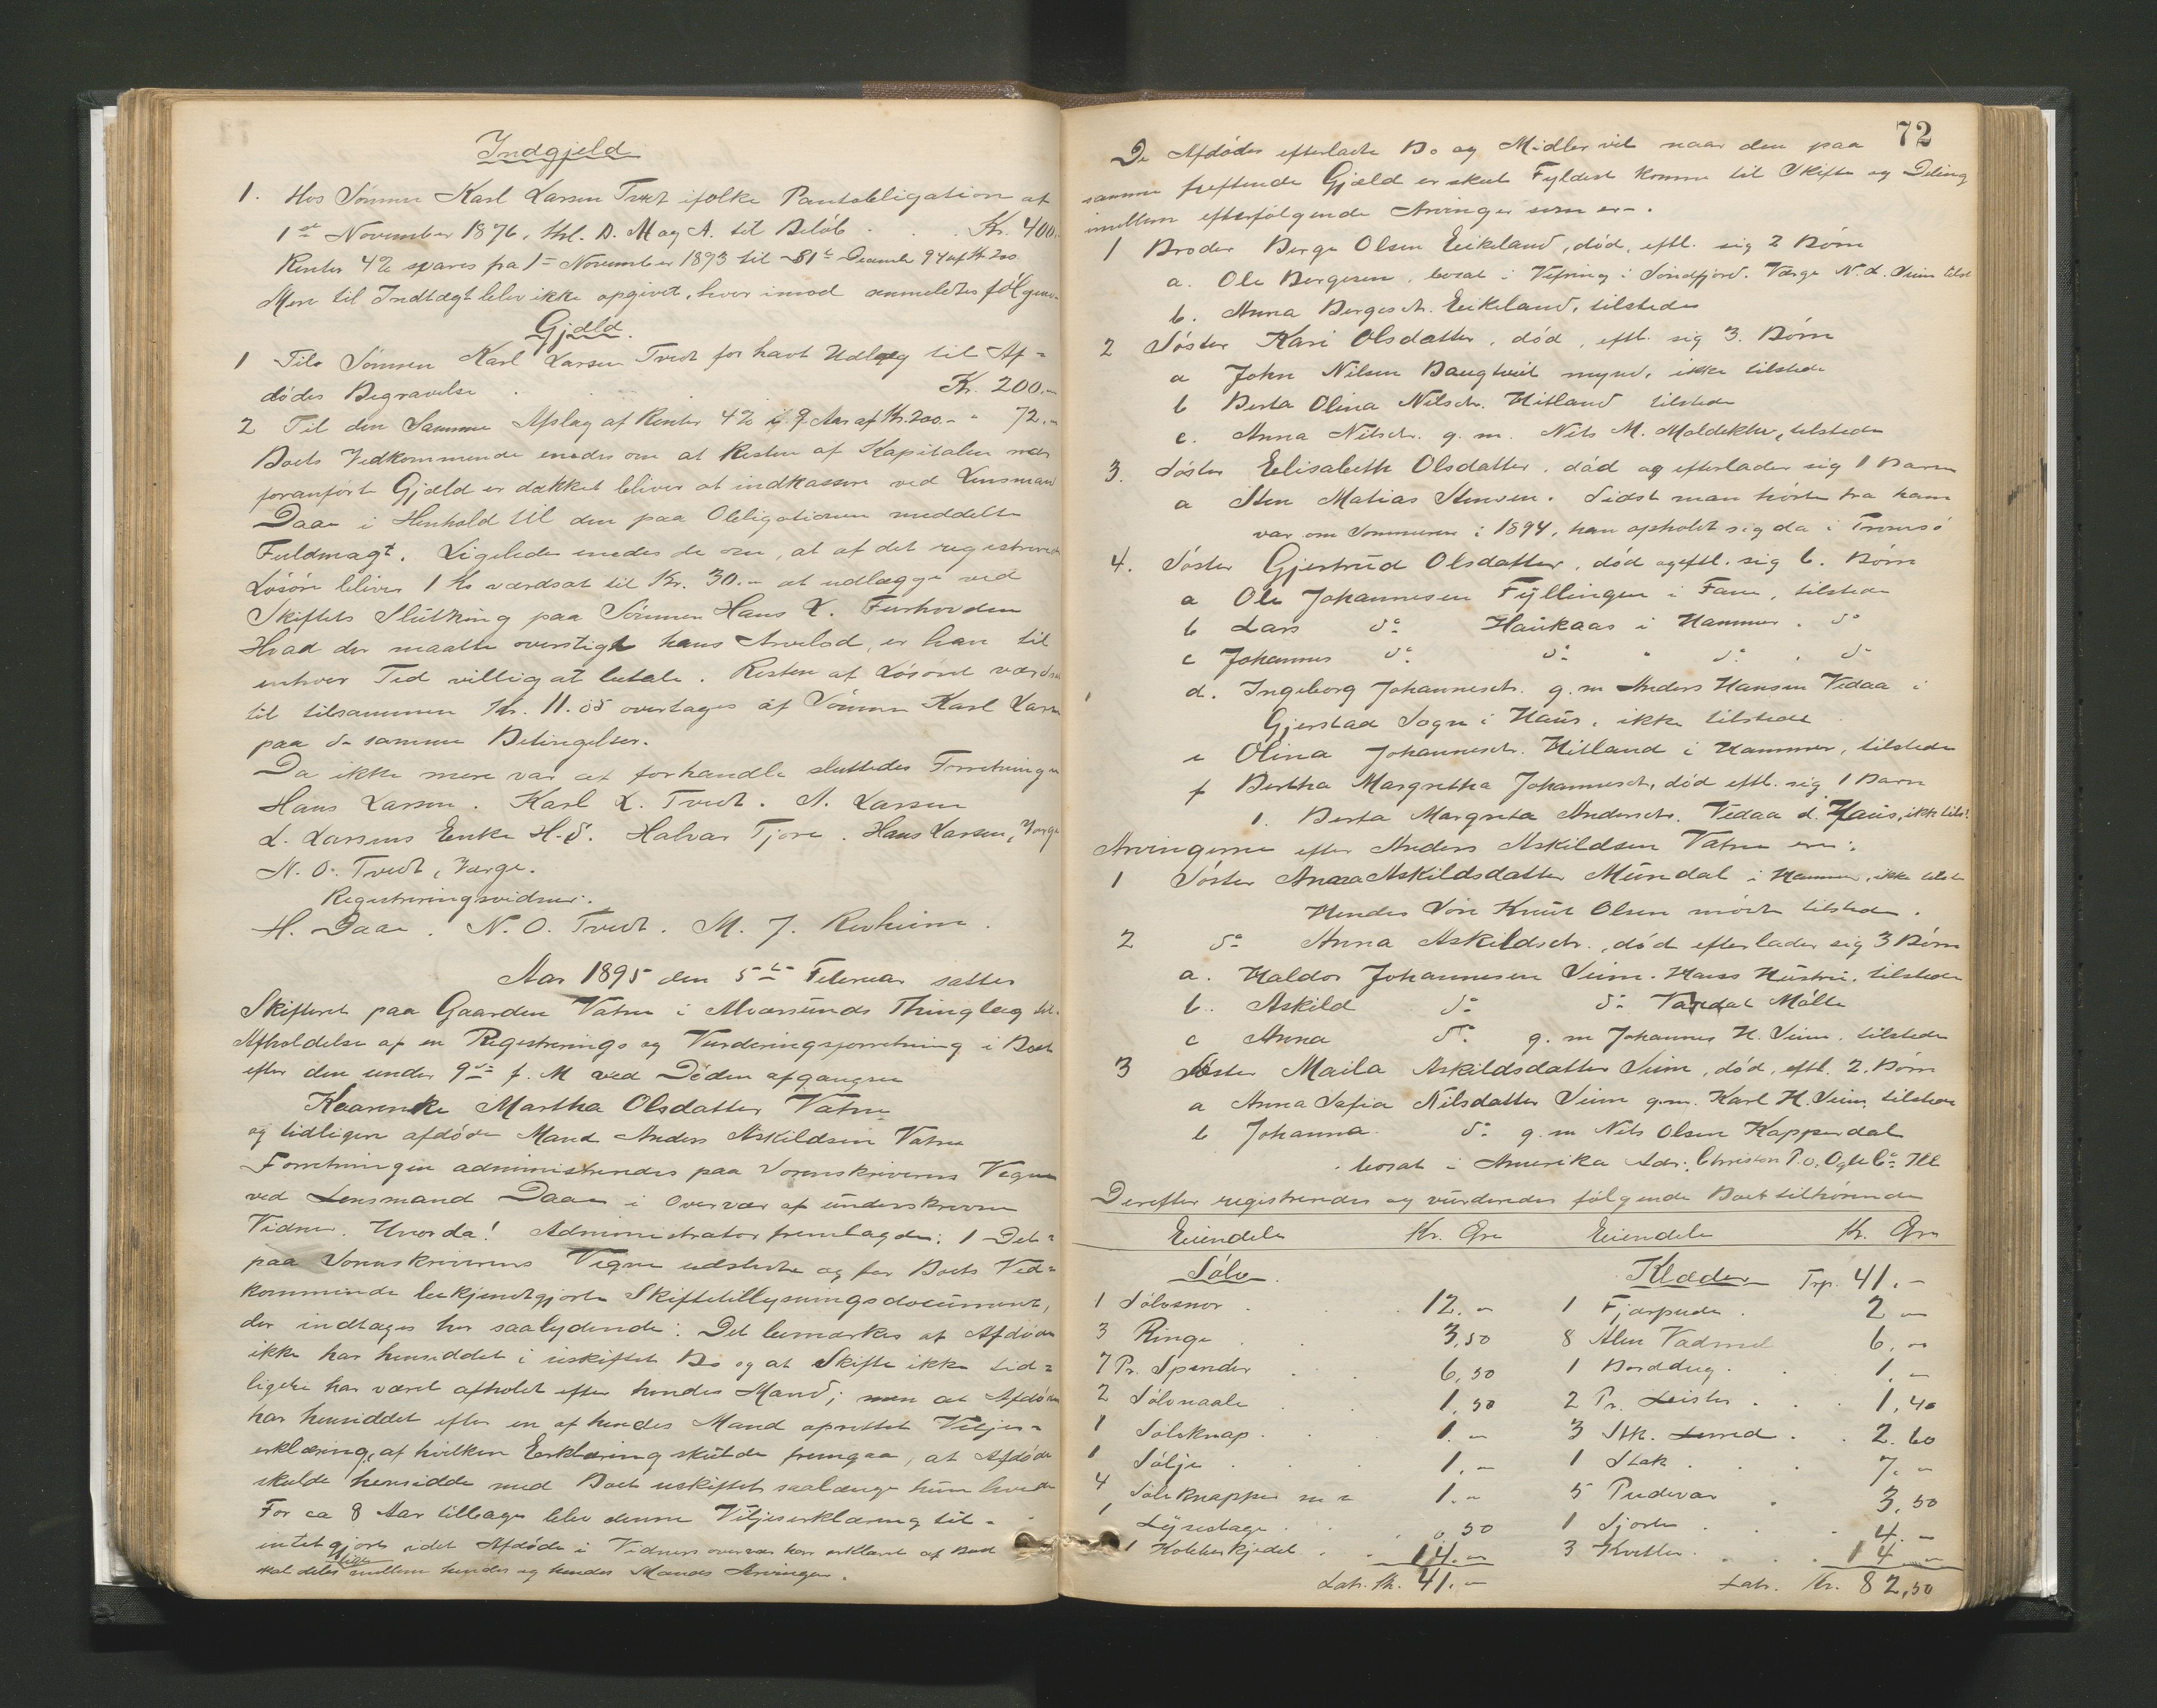 Indgjeld
1. Hos Sønnen Karl Larsen Tvedt ifølke Pantobligation af
1ste November 1876, thl. D. M og A. til Beløb . . . Kr. 400.
Renter 4% spares fra 1= November 1893 til 31te December 94 af Kr. 200
Mere til Indtægt blev ikke opgivet, hvor imod anmeldtes følgen-
Gjæld.
1 Tilo Sønnen Karl Larsen Tvedt for havt Udlæg til Af=
dødes Begravelse . . . Kr. 200.-
2 Til den Samme Afslag af Renter 4% i 9 Aar af Kr. 200.- " 72.-
Boets Vedkommende enedes om at Resten af Kapitalen naar
foranførte Gjæld er dækket bliver at indkassere ved Lensmand
Daae i Henhold til den paa Obligationen meddelte
Fuldmagt. Ligeledes enedes de om, at af det registrerede
Løsøre bliver 1 Ko værdsat til Kr. 30.- at udlægge ved
Skiftets Slutning paa Sønnen Hans L. Furhovden
Hvad der maatte overstige hans Arvelod, er han til
enhver Tid villig at betale. Resten af Løsøret værdsat
til tilsammen Kr. 11.05 overtages af Sønnen Karl Larsen
paa de samme Betingelser.
Da ikke mere var at forhandle sluttedes Forretningen
Hans Larsen. Karl L. Tvedt. A. Larsen
L. Larsens Enke H.S. Halvar Tjore. Hans Larsen, Verge
N. O. Tvedt, Verge.
Registreringsvidner:
H. Daae. N. O. Tvedt. M. J. Revheim.
Aar 1895 den 5te Februar sattes
Skifteret paa Gaarden Vatne i Alversunds Thinglag til
Afholdelse af en Registrerings og Vurderingsforretning i Boet
efter den under 9de f. M ved Døden afgangne
Kaarenke Martha Olsdatter Vatne
og tidligere afdøde Mand Anders Askildsen Vatne
Forretningen administreredes paa Sorenskriverens Vegne
ved Lensmand Daae i Overvær af underskrevne
Vidner. Hvorda! Administrator fremlagde: 1 Det=
paa Sorenskriverens Vegne udstedte og for Boets Ved=
kommende bekjendtgjorte Skiftetillysningsdocument,
der indtages her saalydende: Det bemærkes at Afdøde
ikke har hensiddet i uskiftet Bo og at Skifte ikke tid=
ligere har været afholdt efter hendes Mand; men at Afdøde
har hensiddet efter en af hendes Mand oprettet Viljes=
erklæring, af hvilken Erklæring skulde fremgaa, at Afdøde
skulde hensidde med Boet uskiftet saalænge hun levede
For ca 8 Aar tilbage blev denne Viljeserklæring til-
intetgjort idet Afdøde i Vidners overvær har erklært at Boet
skal deles lige mellem hendes og hendes Mands Arvinger.
72
De Afdødes efterladte Bo og Midler vil naar den paa
samme heftende Gjæld er skeet Fyldest komme til Skifte og Deling
imellem efterfølgende Arvinger som er-.
1 Broder Berge Olsen Eikeland, død, eftl. sig 2 Børn
a. Ole Bergesen, bosat i Vefring i Søndfjord. Værge N. L. Seim tilst
b. Anna Bergesdr. Eikeland, tilstede
2 Søster Kari Olsdatter, død, eftl. sig 3. Børn
a John Nilsen Baugtveit mynd, ikke tilstede
b Berta Olina Nilsdr. Hitland tilstede
c. Anna Nilsdr. g. m. Nils M. Moldeklev, tilstede
3. Søster Eelisabeth Olsdatter, død og efterlader sig 1 Barn
a Sten Matias Stensen. Sidst man hørte fra ham
var om Sommeren i 1894, han opholdt sig da i Tromsø
4. Søster Gjertrud Olsdatter, død og eftl. sig 6. Børn
a Ole Johannesen Fyllingen i Fane, tilstede
b Lars do Haukaas i Hammer. do
c Johannes do do " do . do
d. Ingeborg Johannesdr. g. m Anders Hansen Vedaa i
Gjerstad Sogn i Haus, ikke tilstede
e Olina Johannesdr. Hitland i Hammer, tilstede
f Bertha Margretha Johannesdr, død eftl. sig 1 Barn
1. Berta Margreta Andersdr. Vedaa i Haus, ikke tilst.
Arvingerne efter Anders Askildsen Vatne ere:
1 Søster Anna Askildsdatter Mundal i Hammer, ikke tilst
Hendes Søn Knut Olsen mødte tilstede.
2 do Anna Askildsdr., død efterlader sig 3 Børn
a. Haldor Johannesen Seim. Hans Hustru. tilstede
b. Askild do do Vandat Mølle
c Anna do g. m Johannes H. Seim. tilstede
3 Søster Maila Askildsdatter Seim, død, eftl. 2. Børn
a Anna Safia Nilsdatter Seim g.m. Karl H. Seim, tilstede
b Johanna. do g. m Nils Olsen Kapperdal
bosat i Amerika Adr. Christon P.o. Ogle Co. Ill
Derefter registreredes og vurderedes følgende Boet tilhørende
Eiendele Kr. Øre Eiendele Kr. Øre
Sølv Klæder Trp. 41.-
1 Sølvsnor . . . 12.- 1 Fjærpude . 2 -
3 Ringe . . 3,50 8 Alen Vadmel 6.-
7 Pr. Spender . . 6,50 1 Borddug. . . 1.-
2 Sølvnaale . . 1,50 2 Pr. Leister . . . 1,40
1 Sølvknap. . . 1.- 3 Stk. Lerred . . 2.60
1 Sølje . . . 1.- 1 Stak . . . 7.-
4 Sølvknapper m m 1.- 5 Pudevar . 3,50
1 Lysestage . . 0,50 1 Sjorte . . . 4.-
1 Kobberkjedel . . 14.- 3 Kvitler . . . 14.-
Latr. Kr. 41.- Latr. Kr. 82,50